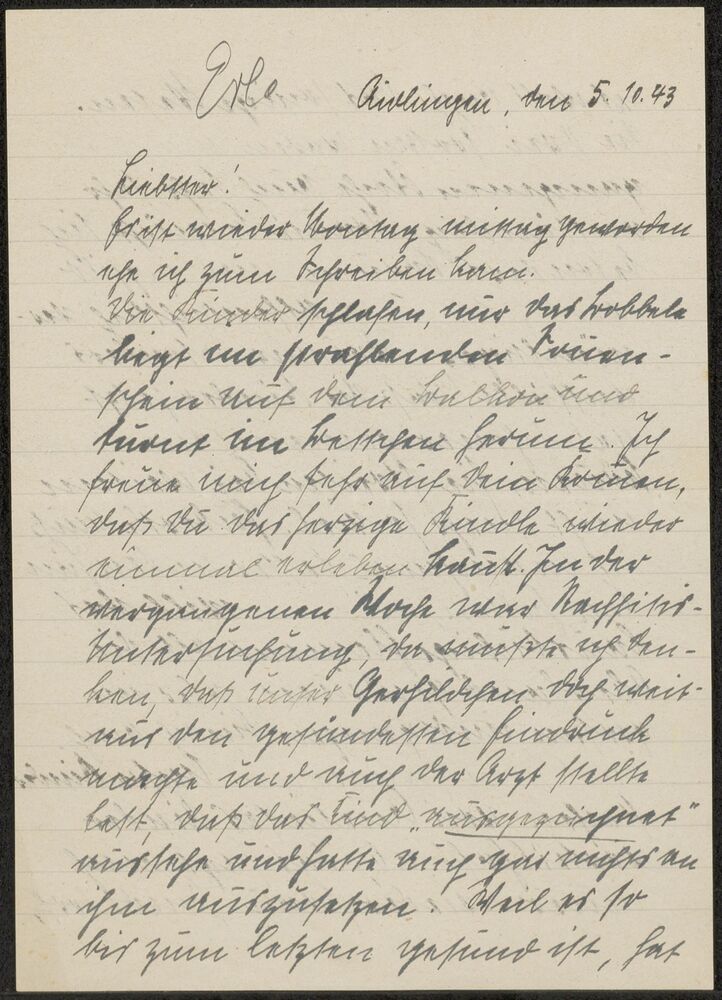 Erbe
Aidlingen, den 5.10.43
Liebster!
Es ist wieder Montag-mittag geworden
ehe ich zum Schreiben kam.
Die Kinder schlafen, nur das Bobbele
liegt im strahlenden Sonnen-
schein auf dem Balkon und
turnt im Bettchen herum. Ich
freue mich sehr auf Dein Kommen,
daß Du das herzige Kindle wieder
einmal erleben kannst. In der
vergangenen Woche war Rachitis-
untersuchung, da mußte ich den-
ken, daß unser Gerhildchen doch weit-
aus den gesündesten Eindruck
machte und auch der Arzt stellte
fest, daß das Kind „ausgezeichnet"
aussehe und hatte auch gar nichts an
ihm auszusetzen. Weil es so
bis zum letzten gesund ist, hat